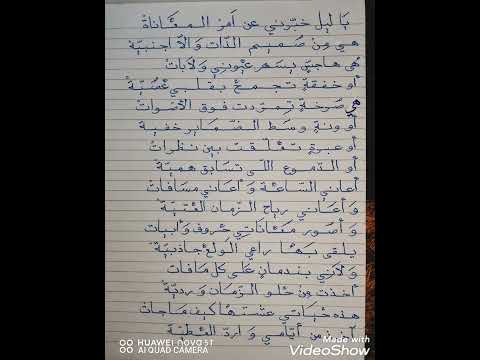 يَا لَيل خبّرني عن أمر المعَانَاة
هي من صَميم الذّات وَالّا أجنبيّة
هي هاجسٍ يسهر عيوني وَلَابَات
أو خفقةٍ تجمح بقلبي عَصيّة
هي صَرخةٍ تمرّدت فوق الأصوَات
أو ونةٍ وسط الضّمَاير خفية
أو عبرةٍ تعلّقت بين نظرات
أو الدّموع اللي تسَابق هميّة
أعاني السّاعَة وَأعَاني مسَافات
وَأعَاني رياح الزّمان العتيّة
وَأصَور معَانَاتي حُروف وَأبيات
يلقى بهَا راعي الولَع جَاذبيّة
وَلَاني بندمانٍ عَلى كل مَافات
أخذت من حلو الزّمَان وَرديّة
هذه حيَاتي عشتهَا كيف مَاجَات
آخذ من أيّامي وَاردّ العَطيّة
HUAWEI nova 5T
AI QUAD CAMERA
Made with
VideoShow